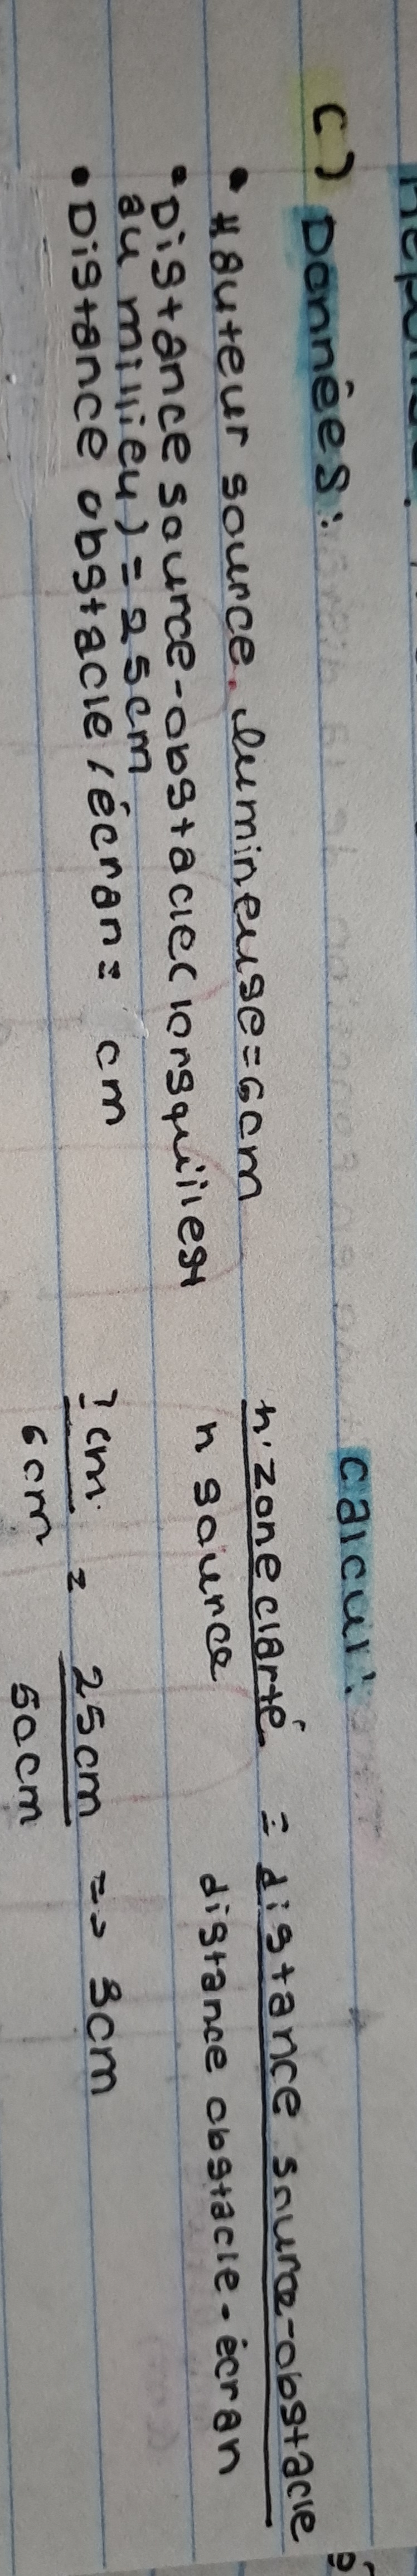 c) Données:
• Hauteur source lumineuse=6cm
• Distance source-obstacle(lorsquilest
au millieu)=25cm
• Distance obstacle/écran= cm
calcul:
h'zone clarté = distance source-obstacle
h source distance obstacle-écran
?cm = 25cm => 3cm
6cm 50cm